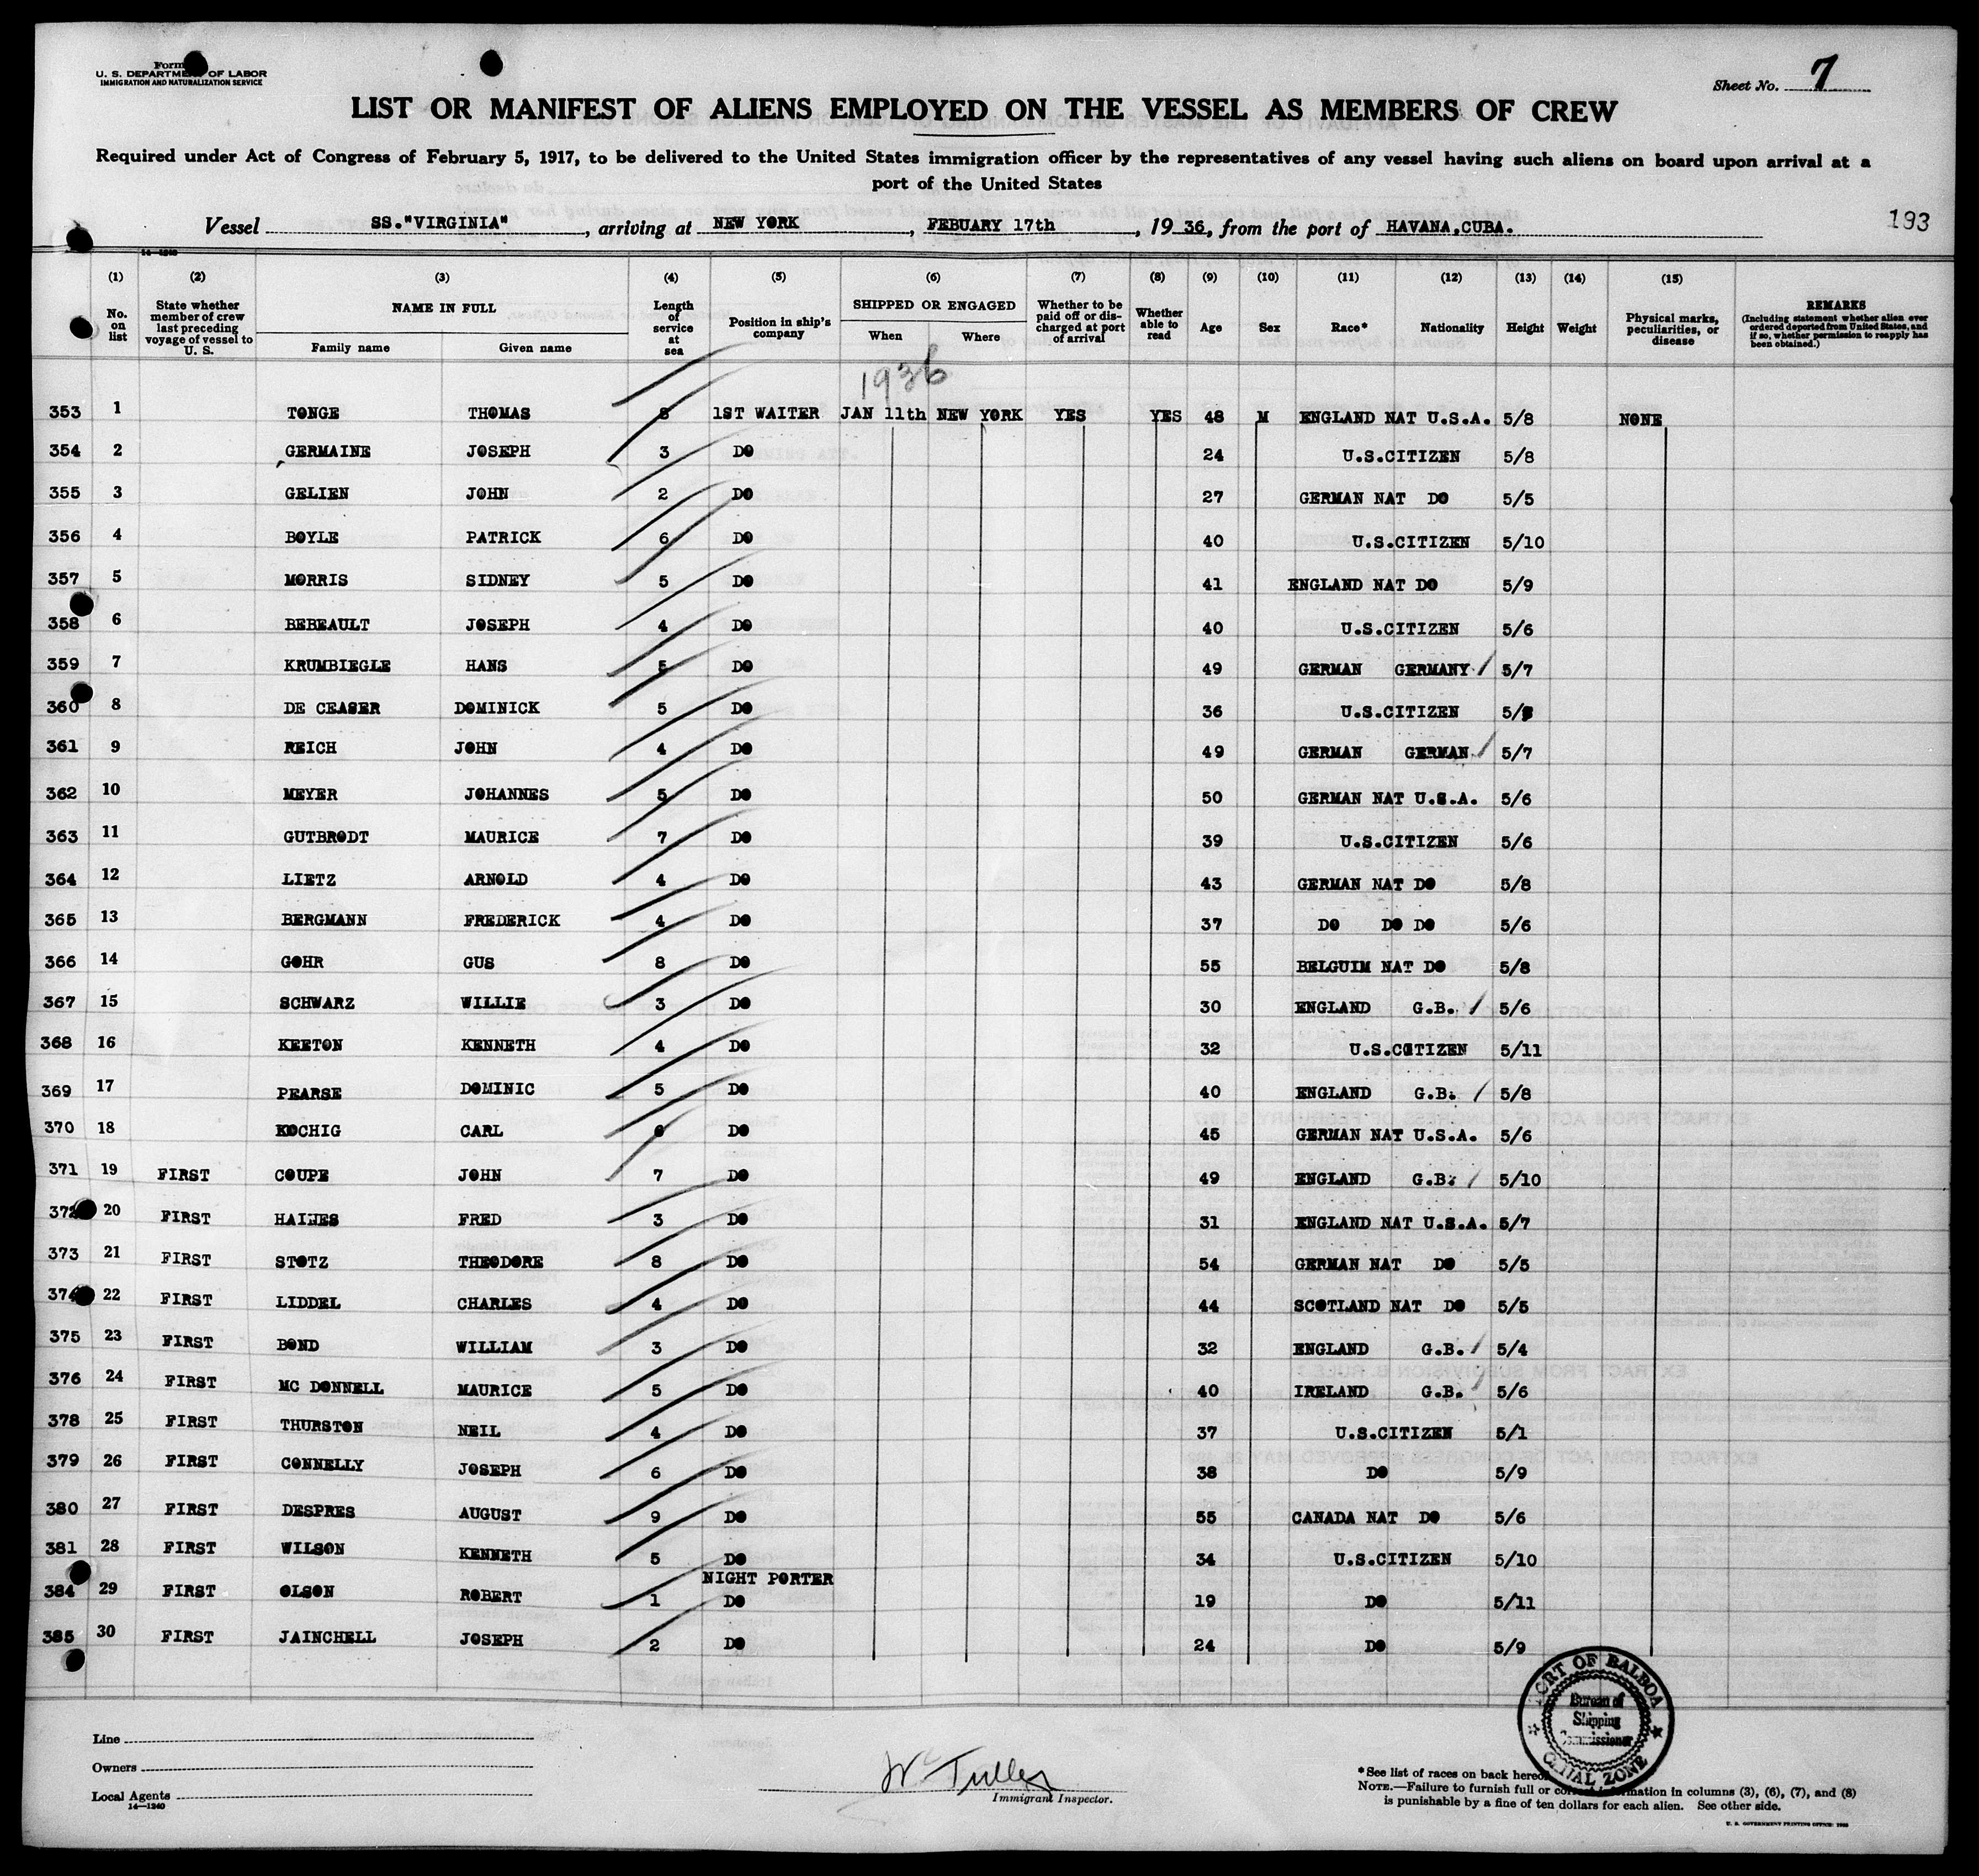 Form
U. S. DEPARTMENT OF LABOR
IMMIGRATION AND NATURALIZATION SERVICE
Sheet No. 7
LIST OR MANIFEST OF ALIENS EMPLOYED ON THE VESSEL AS MEMBERS OF CREW
Required under Act of Congress of February 5, 1917, to be delivered to the United States immigration officer by the representatives of any vessel having such aliens on board upon arrival at a
port of the United States
Vessel SS."VIRGINIA", arriving at NEW YORK, FEBUARY 17th, 1936, from the port of HAVANA,CUBA. 193
14—1240
(1) (2) (3) (4) (5) (6) (7) (8) (9) (10) (11) (12) (13) (14) (15)
No. on list | State whether member of crew last preceding voyage of vessel to U. S. | NAME IN FULL Family name Given name | Length of service at sea | Position in ship's company | SHIPPED OR ENGAGED When Where | Whether to be paid off or discharged at port of arrival | Whether able to read | Age | Sex | Race* | Nationality | Height | Weight | Physical marks, peculiarities, or disease | REMARKS (Including statement whether alien ever ordered deported from United States, and if so, whether permission to reapply has been obtained.)
1936
353 1 TONGE THOMAS 8 1ST WAITER JAN 11th NEW YORK YES YES 48 M ENGLAND NAT U.S.A. 5/8 NONE
354 2 GERMAINE JOSEPH 3 DO 24 U.S.CITIZEN 5/8
355 3 GELIEN JOHN 2 DO 27 GERMAN NAT DO 5/5
356 4 BOYLE PATRICK 6 DO 40 U.S.CITIZEN 5/10
357 5 MORRIS SIDNEY 5 DO 41 ENGLAND NAT DO 5/9
358 6 BEBEAULT JOSEPH 4 DO 40 U.S.CITIZEN 5/6
359 7 KRUMBIEGLE HANS 5 DO 49 GERMAN GERMANY 5/7
360 8 DE CEASER DOMINICK 5 DO 36 U.S.CITIZEN
361 9 REICH JOHN 4 DO 49 GERMAN GERMAN 5/7
362 10 MEYER JOHANNES 5 DO 50 GERMAN NAT U.S.A. 5/6
363 11 GUTBRODT MAURICE 7 DO 39 U.S.CITIZEN 5/6
364 12 LIETZ ARNOLD 4 DO 43 GERMAN NAT DO 5/8
365 13 BERGMANN FREDERICK 4 DO 37 DO DO DO 5/6
366 14 GOHR GUS 8 DO 55 BELGUIM NAT DO 5/8
367 15 SCHWARZ WILLIE 3 DO 30 ENGLAND G.B. 5/6
368 16 KEETON KENNETH 4 DO 32 U.S.CITIZEN 5/11
369 17 PEARSE DOMINIC 5 DO 40 ENGLAND G.B. 5/8
370 18 KOCHIG CARL 6 DO 45 GERMAN NAT U.S.A. 5/6
371 19 FIRST COUPE JOHN 7 DO 49 ENGLAND G.B. 5/10
372 20 FIRST HAINES FRED 3 DO 31 ENGLAND NAT U.S.A. 5/7
373 21 FIRST STOTZ THEODORE 8 DO 54 GERMAN NAT DO 5/5
374 22 FIRST LIDDEL CHARLES 4 DO 44 SCOTLAND NAT DO 5/5
375 23 FIRST BOND WILLIAM 3 DO 32 ENGLAND G.B. 5/4
376 24 FIRST MC DONNELL MAURICE 5 DO 40 IRELAND G.B. 5/6
378 25 FIRST THURSTON NEIL 4 DO 37 U.S.CITIZEN 5/1
379 26 FIRST CONNELLY JOSEPH 6 DO 38 DO 5/9
380 27 FIRST DESPRES AUGUST 9 DO 55 CANADA NAT DO 5/6
381 28 FIRST WILSON KENNETH 5 DO 34 U.S.CITIZEN 5/10
NIGHT PORTER
384 29 FIRST OLSON ROBERT 1 DO 19 DO 5/11
385 30 FIRST JAINCHELL JOSEPH 2 DO 24 DO 5/9
PORT OF BALBOA
Bureau of
Shipping
Commissioner
CANAL ZONE
Line
Owners
Local Agents
14—1240
W Tuller
Immigrant Inspector.
*See list of races on back hereof
NOTE.—Failure to furnish full or correct information in columns (3), (6), (7), and (8)
is punishable by a fine of ten dollars for each alien. See other side.
U. S. GOVERNMENT PRINTING OFFICE